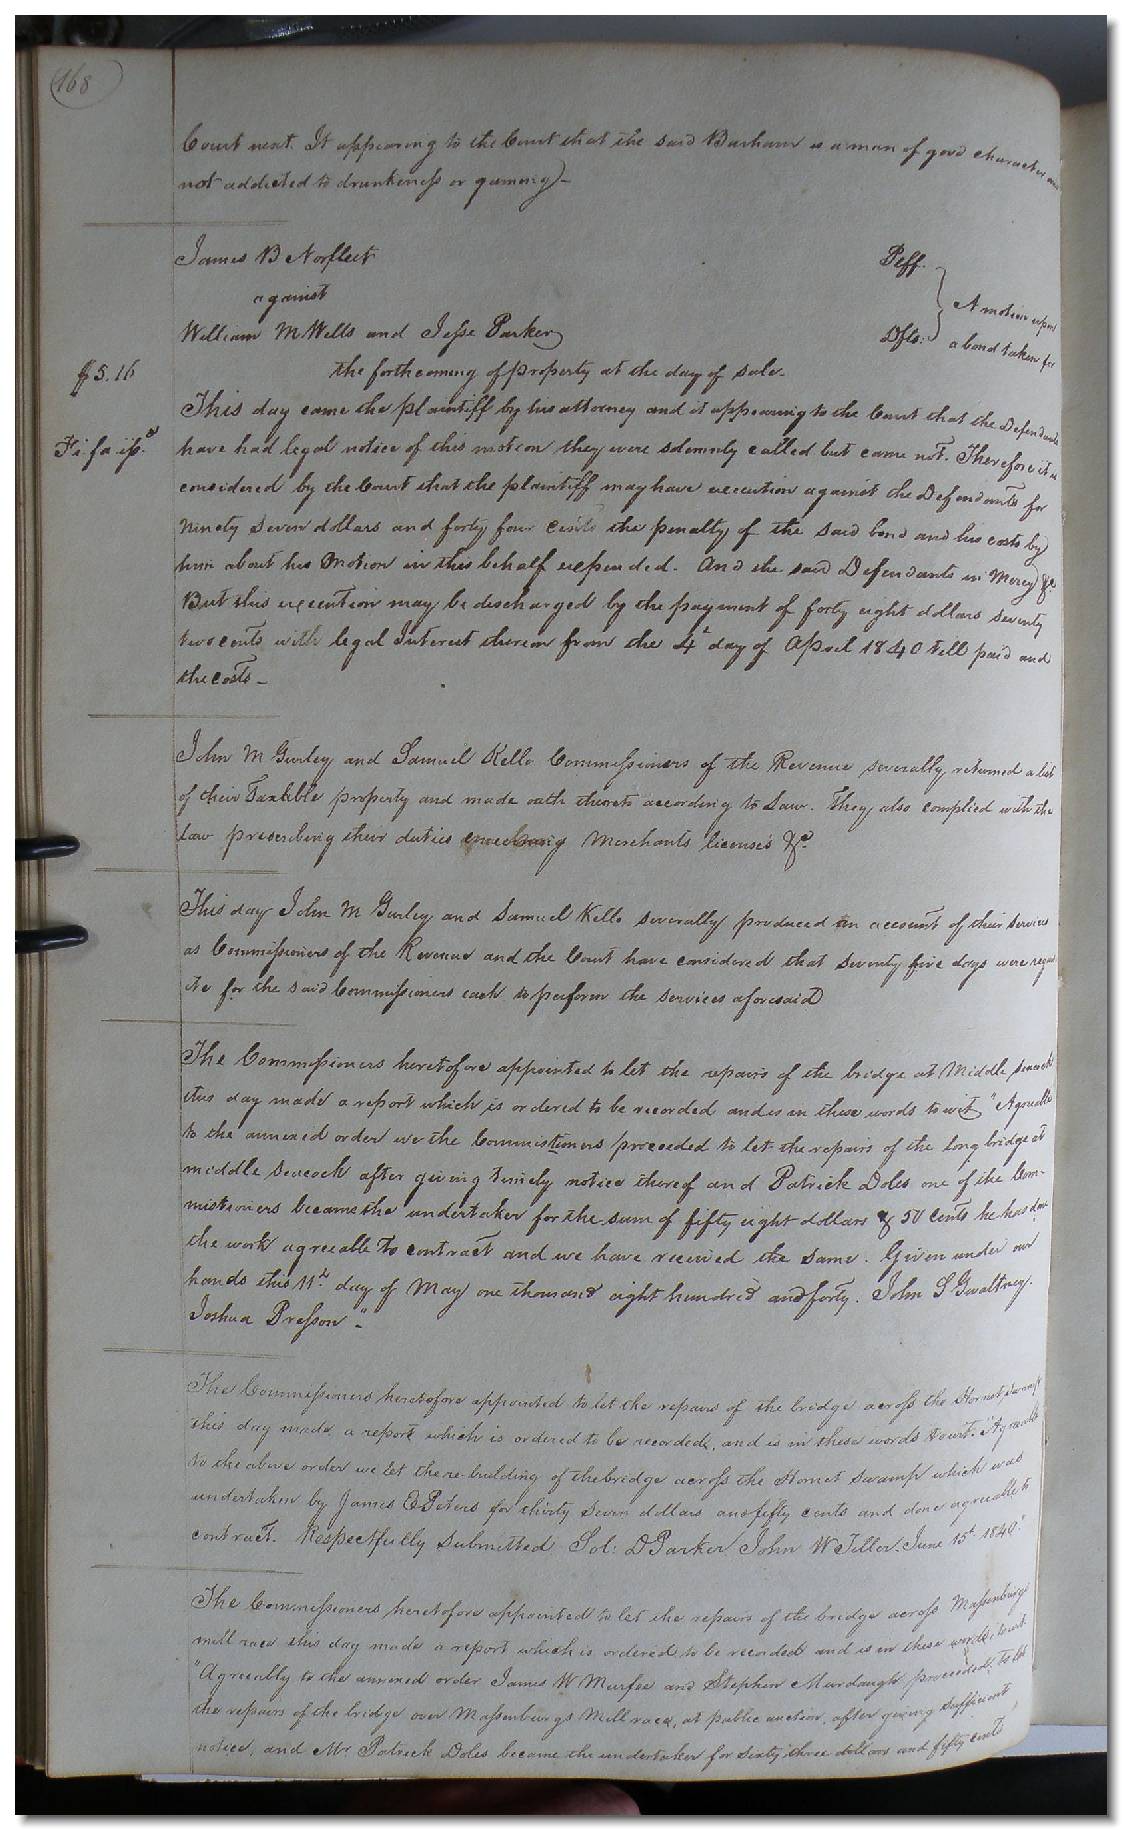 168
Court next. It appearing to the Court that the said Barham is a man of good character and
not addicted to drunkeness or gaming)-
James B Norfleet Plff.
against
William M Wells and Jesse Parker Dfts. A motion upon
a bond taken for
the forthcoming of property at the day of sale
$5.16
This day came the plaintiff by his attorney and it appearing to the Court that the Defendants
Fi. fa. iss.d
have had legal notice of this motion they were solemnly called but came not. Therefore it is
considered by the Court that the plaintiff may have execution against the Defendants for
ninety seven dollars and forty four cents the penalty of the said bond and his costs by
him about his Motion in this behalf expended. And the said Defendants in Mercy &c.
But this execution may be discharged by the payment of forty eight dollars seventy
two cents with legal Interest thereon from the 4th day of April 1840 till paid and
the costs -
John M Gurley and Samuel Kello Commissioners of the Revenue severally returned a list
of their Taxable property and made oath thereto according to Law. They also complied with the
law prescribing their duties Merchants licenses &c.
This day John M Gurley and Samuel Kello severally produced an account of their services
as Commissioners of the Revenue and the Court have considered that seventy five days were requi
ite for the said Commissioners each to perform the services aforesaid
The Commissioners heretofore appointed to let the repairs of the bridge at Middle Seacock
this day made a report which is ordered to be recorded and is in these words to wit "Agreeable
to the annexed order we the Commistioners proceeded to let the repairs of the long bridge at
middle Seacock after giving timely notice thereof and Patrick Doles one of the Com-
mistioners became the undertaker for the sum of fifty eight dollars & 50 cents he has done
the work agreeable to contract and we have received the same. Given under our
hands this 11th day of May one thousand eight hundred and forty. John S Gwaltney.
Joshua Presson".
The Commissioners heretofore appointed to let the repairs of the bridge across the Hornet swamp
this day made a report which is ordered to be recorded, and is in these words to wit. "Agreeable
to the above order we let the re-building of the bridge across the Hornet Swamp which was
undertaken by James E Peters for thirty seven dollars and fifty cents and done agreeable to
contract. Respectfully submitted Sol: D Parker John W Teller. June 15th 1840."
The Commissioners heretofore appointed to let the repairs of the bridge across Massenburgs
mill race this day made a report which is ordered to be recorded and is in these words, to wit
"Agreeably to the annexed order James W Murfee and Stephen Murdaugh proceeded, to let
the repairs of the bridge over Massenburgs Mill race, at public auction, after giving sufficient
notice, and Mr Patrick Doles became the undertaker for sixty three dollars and fifty cents